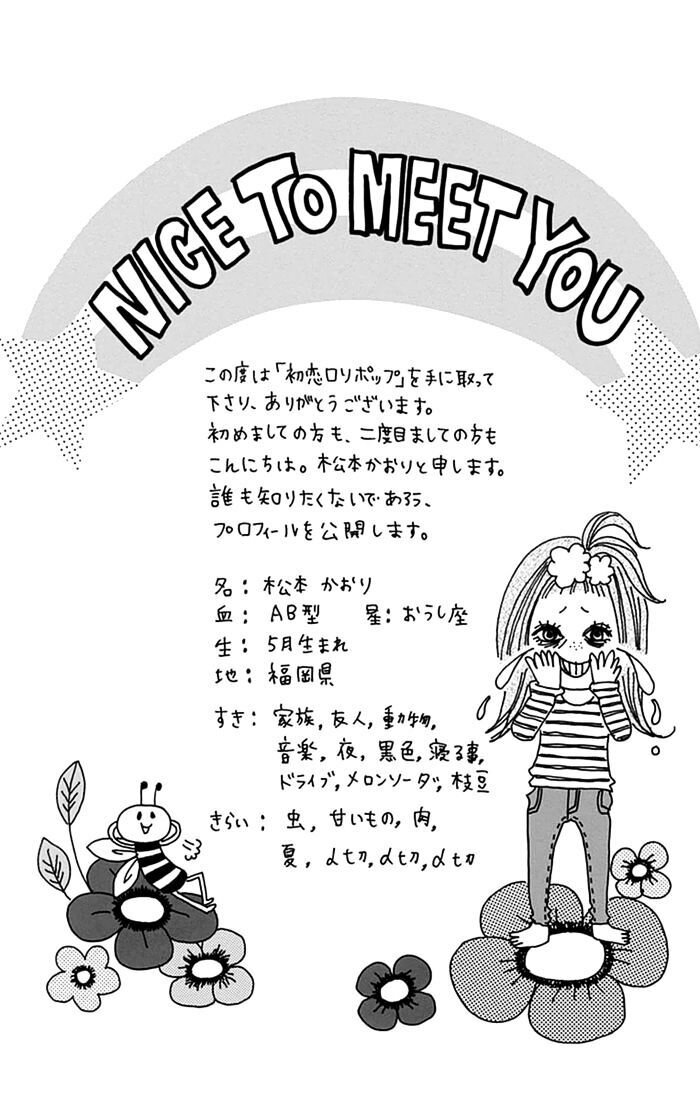 NICE TO MEET YOU
この度は「初恋ロリポップ」を手に取って
下さり、ありがとうございます。
初めましての方も、二度目ましての方も
こんにちは。松本かおりと申します。
誰も知りたくないであろう、
プロフィールを公開します。
名: 松本 かおり
血: AB型 星: おうし座
生: 5月生まれ
地: 福岡県
すき: 家族, 友人, 動物,
音楽, 夜, 黒色, 寝る事,
ドライブ, メロンソーダ, 枝豆
きらい: 虫, 甘いもの, 肉,
夏,